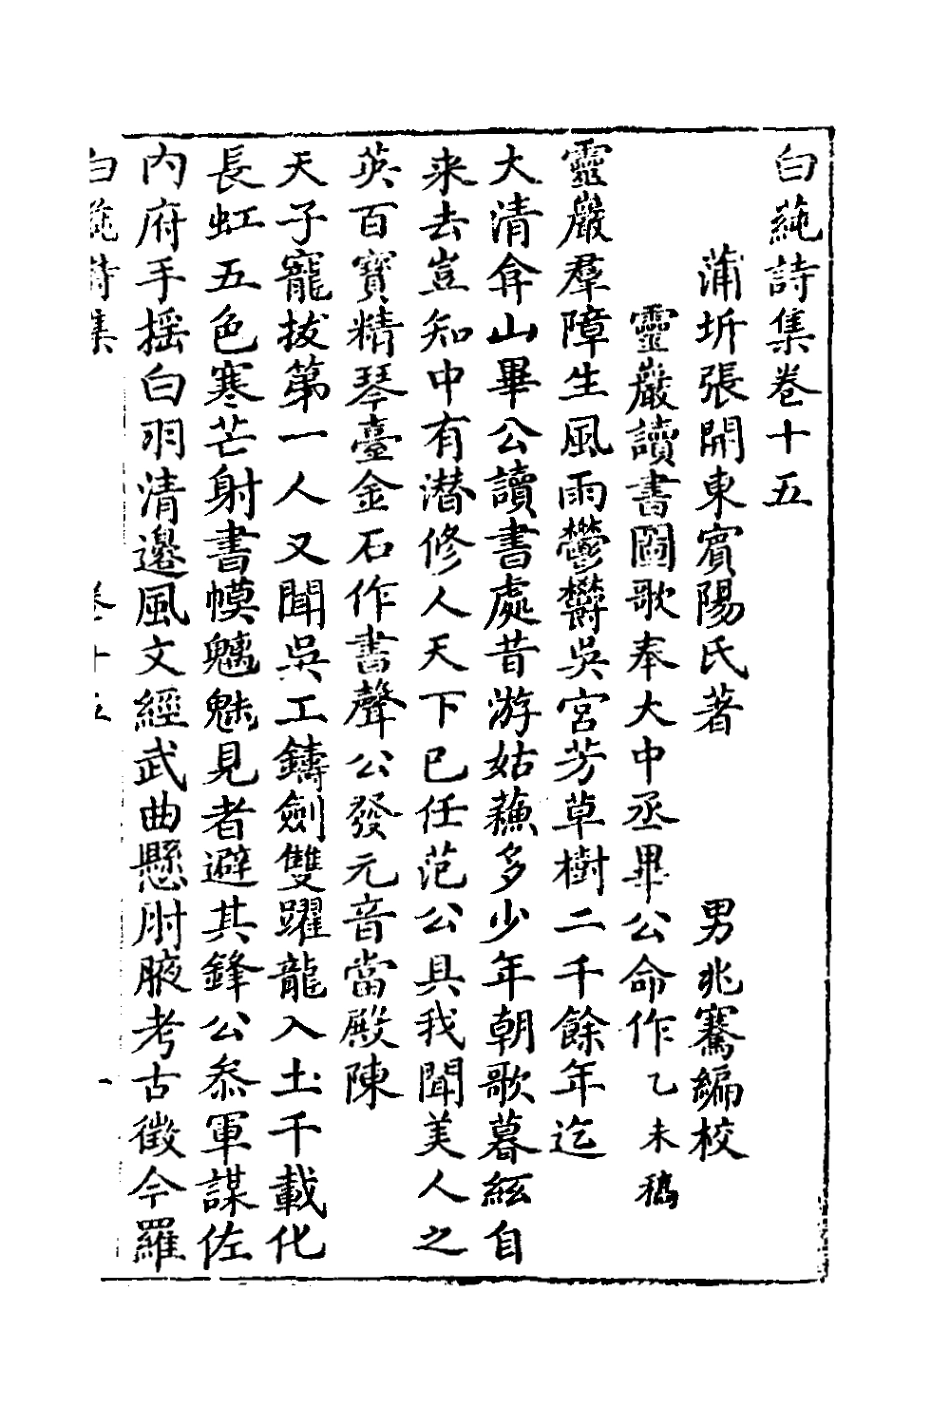 白蒓詩集卷十五
蒲圻張開東賓陽氏著 男兆騫編校
靈巖讀書圖歌奉大中丞畢公命作乙未稿
靈巖羣障生風雨鬱欝吳宮芳草樹二千餘年迄
大清弇山畢公讀書處昔游姑蘓多少年朝歌暮絃自
来去豈知中有潜修人天下已任范公具我聞美人之
英百寳精琴臺金石作書聲公發元音當殿陳
天子寵拔第一人又聞吳工鑄劍雙躍龍入土千載化
長虹五色寒芒射書幙魑魅見者避其鋒公叅軍謀佐
内府手揺白羽清邉風文經武曲懸肘腋考古徵今羅
白蒓詩集 卷十五 一